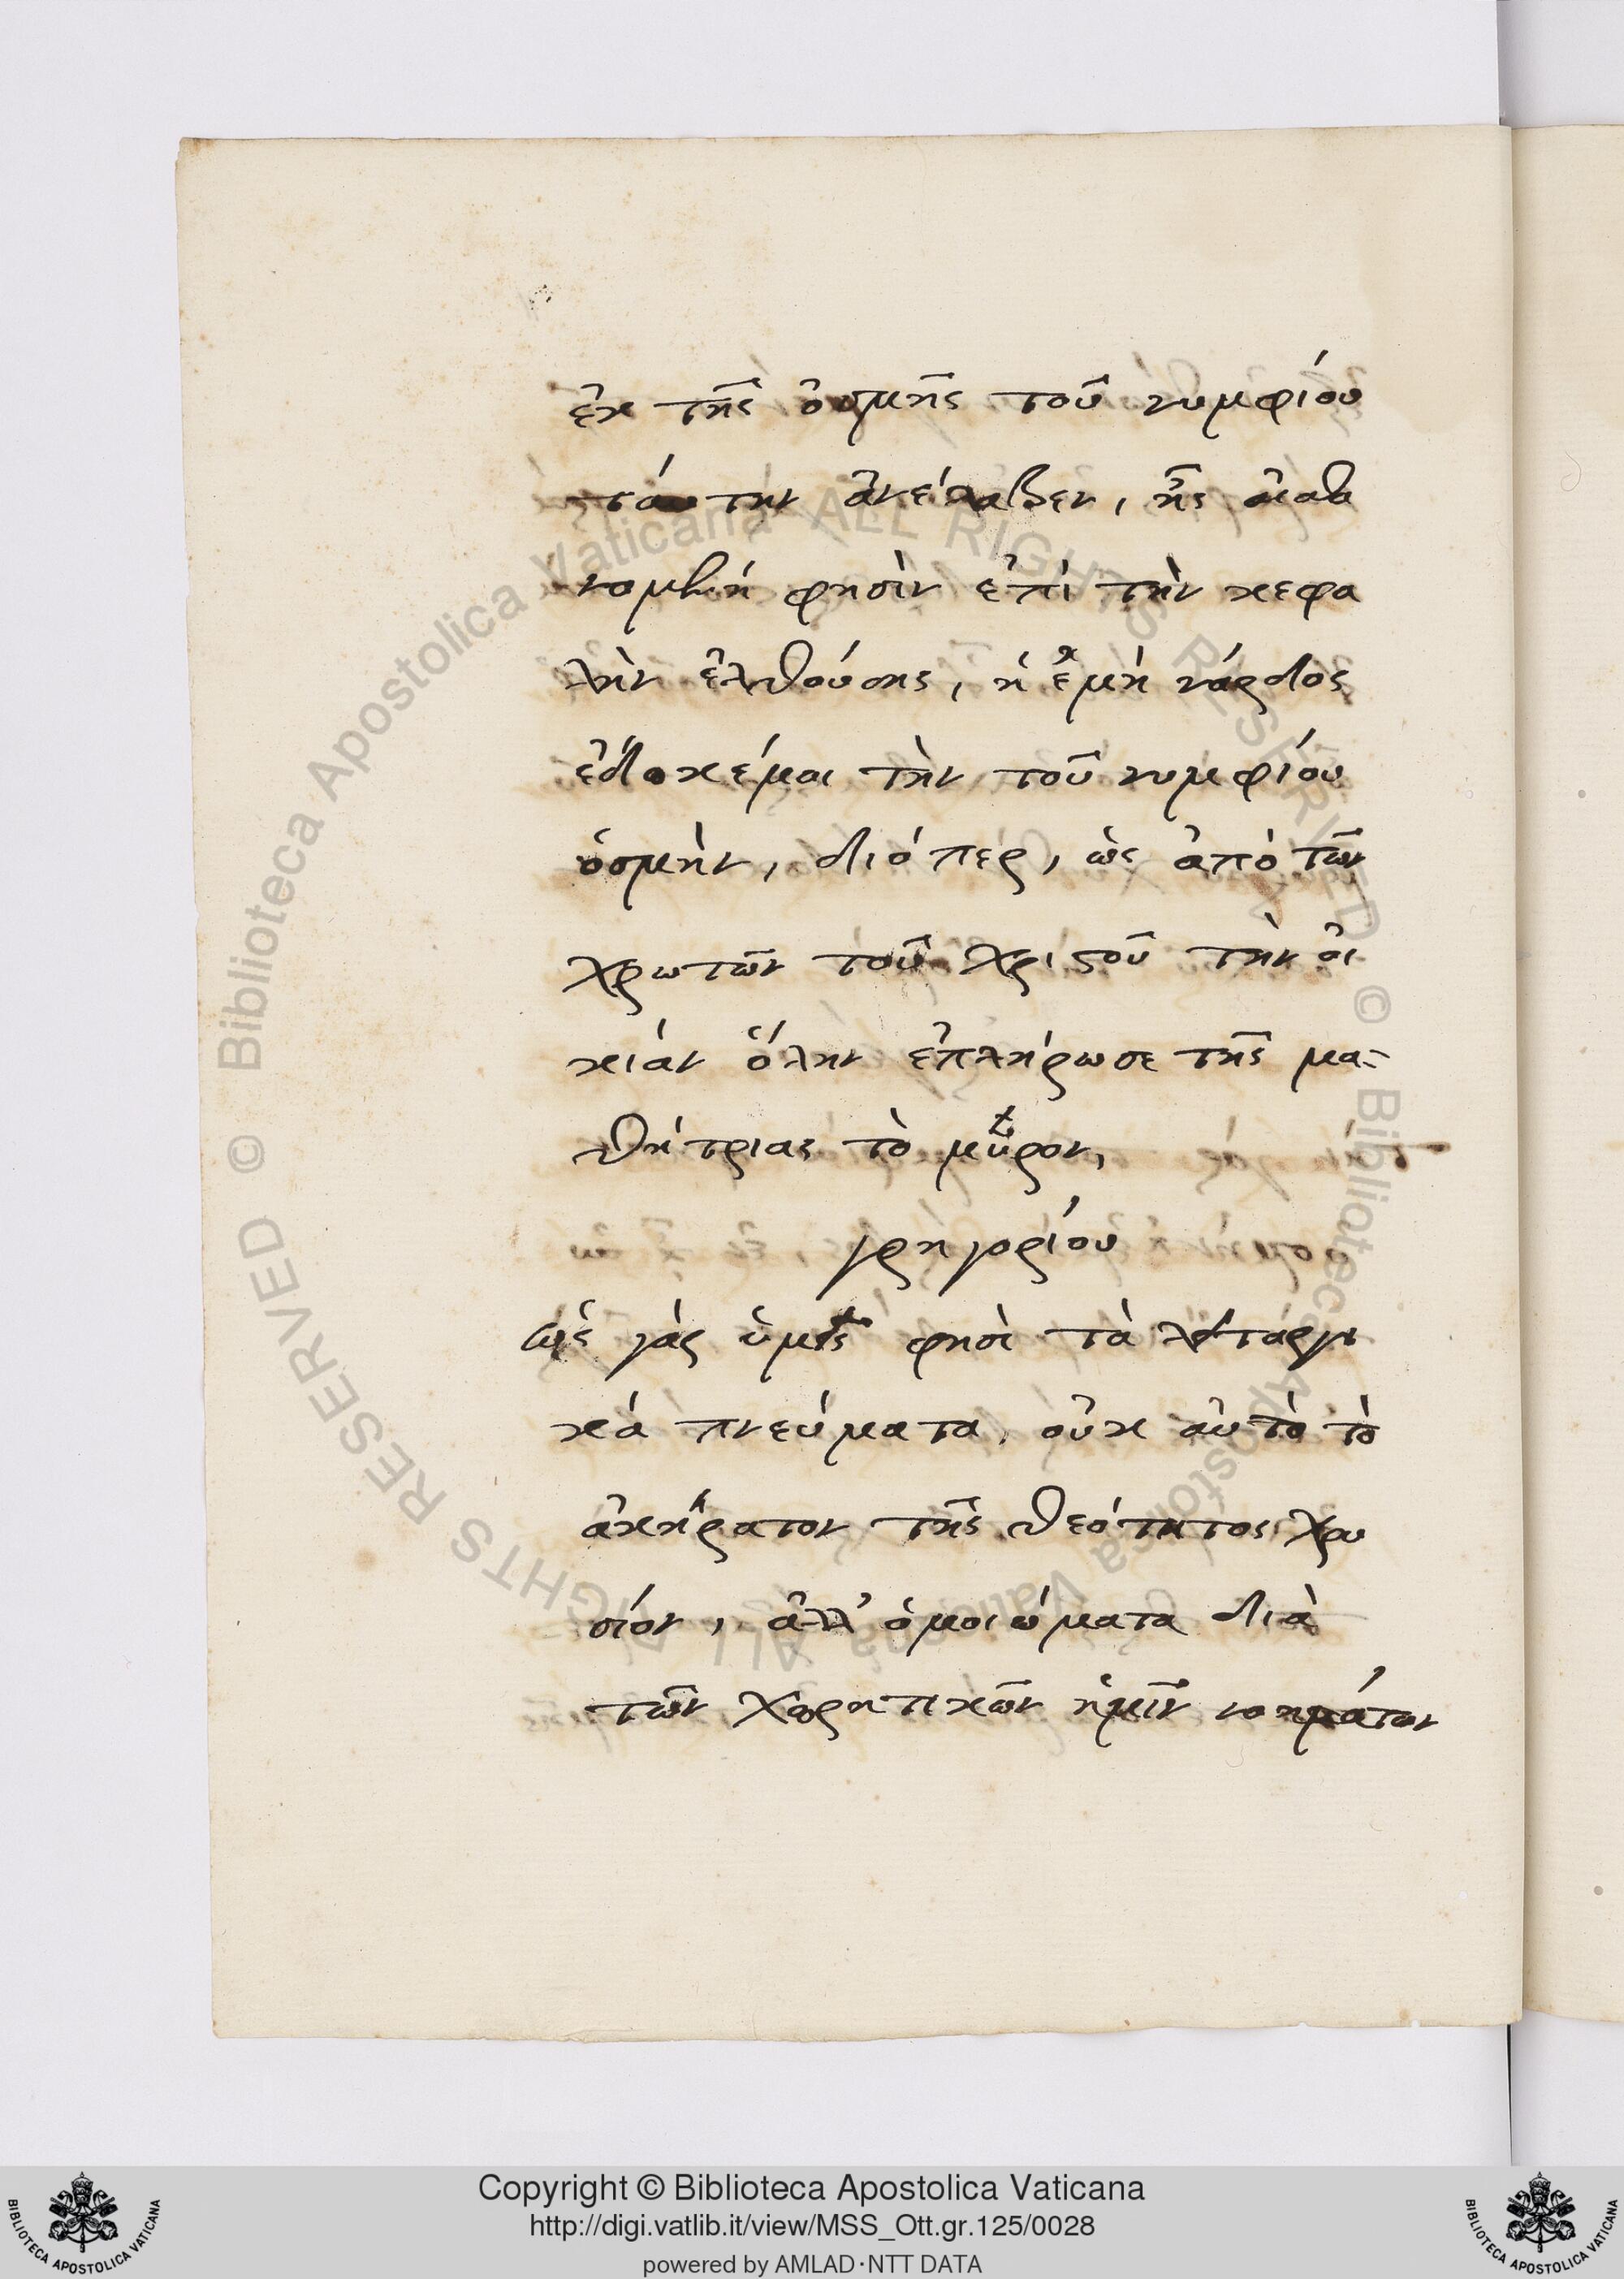 ἐκ τῆς ὀσμῆς τοῦ νυμφίου
ταύτην ἀνέλαβεν, ἧς
φησὶν ἐπὶ τὴν κεφα
λὴν ἐλθούσης, ἡ ἐμὴ νάρδος
τὴν τοῦ νυμφίου
ὀσμὴν, διόπερ, ὡς ἀπὸ τῶν
χρωτῶν τοῦ Χριστοῦ τὴν οἰ
κίαν ὅλην ἐπλήρωσε τῆς μα-
θήτριας τὸ μῦρον,
γρηγορίου
ὡς γὰρ ὑμῖς φησὶ τὰ
κὰ πνεύματα, οὐκ αὐτὸ τὸ
ἀκήρατον τῆς θεότητος χρυ
σίον, ἀλλ' ὁμοιώματα διὰ
τῶν χωρητικῶν ἡμῖν νοημάτων
Biblioteca Apostolica Vaticana ALL RIGHTS RESERVED ©
Biblioteca Apostolica Vaticana ALL RIGHTS RESERVED ©
Copyright © Biblioteca Apostolica Vaticana
http://digi.vatlib.it/view/MSS_Ott.gr.125/0028
powered by AMLAD·NTT DATA
BIBLIOTECA APOSTOLICA VATICANA
BIBLIOTECA APOSTOLICA VATICANA